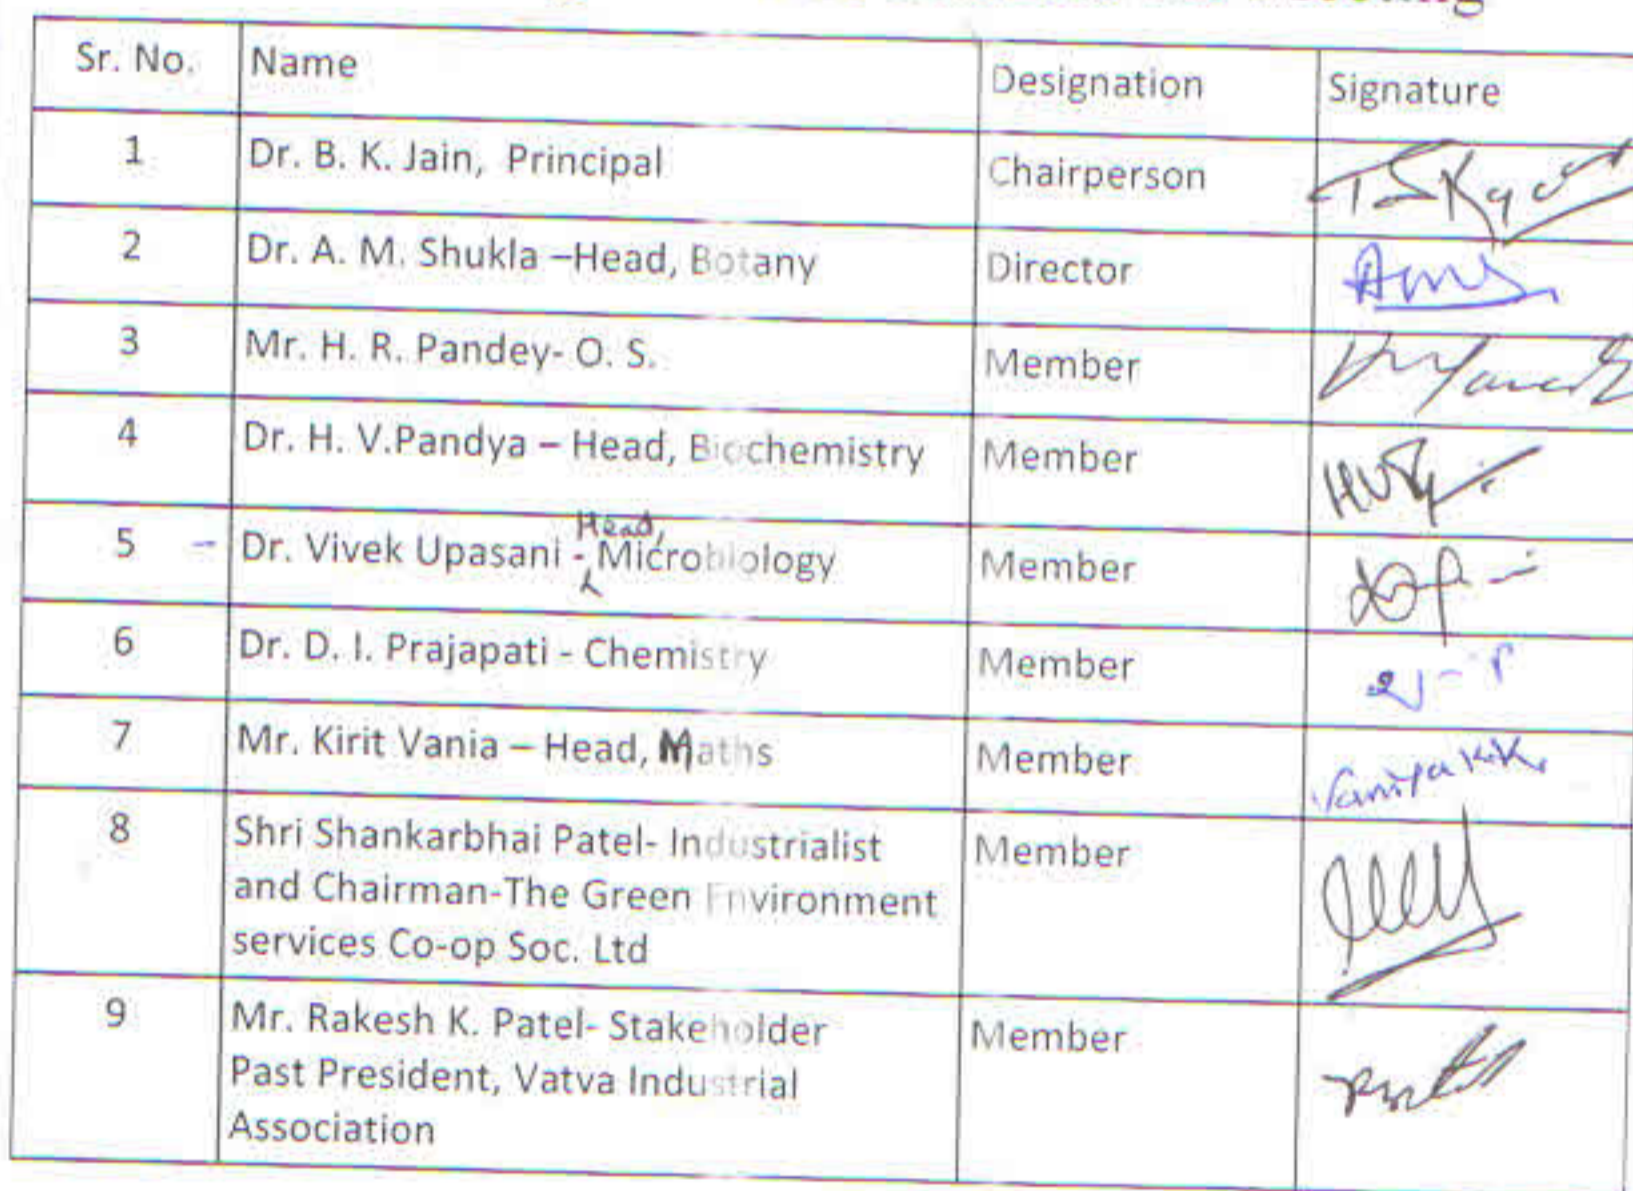 Sr. No. Name Designation Signature
1 Dr. B. K. Jain, Principal Chairperson
2 Dr. A. M. Shukla –Head, Botany Director
3 Mr. H. R. Pandey- O. S. Member
4 Dr. H. V.Pandya – Head, Biochemistry Member
5 - Dr. Vivek Upasani - Head, Microbiology Member
6 Dr. D. I. Prajapati - Chemistry Member
7 Mr. Kirit Vania – Head, Maths Member
8 Shri Shankarbhai Patel- Industrialist Member
and Chairman-The Green Environment
services Co-op Soc. Ltd
9 Mr. Rakesh K. Patel- Stakeholder Member
Past President, Vatva Industrial
Association